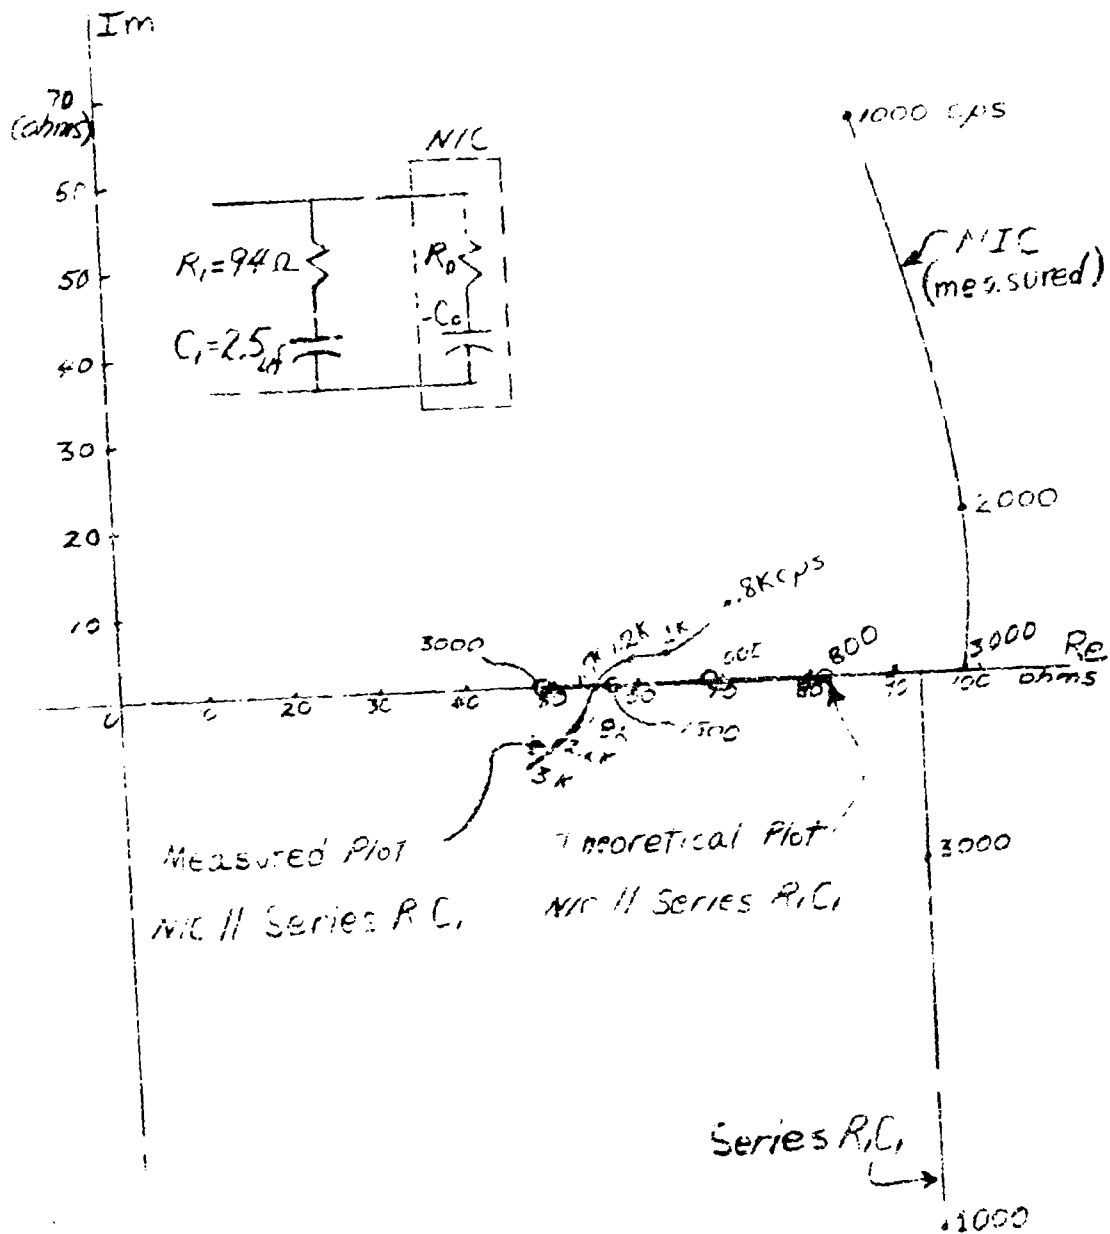 Im
70
(ohms)
60
50
40
30
20
10
0
NIC
R₁=94Ω
C₁=2.5μf
R₀
-C₀
1000 cps
NIC
(measured)
2000
3000
Re
ohms
.8Kcps
1.2K 1K
3000
800
20
30
40
100
1500
3K
Measured Plot
NIC // Series R C₁
Theoretical Plot
NIC // Series R₁C₁
3000
Series R₁C₁
1000